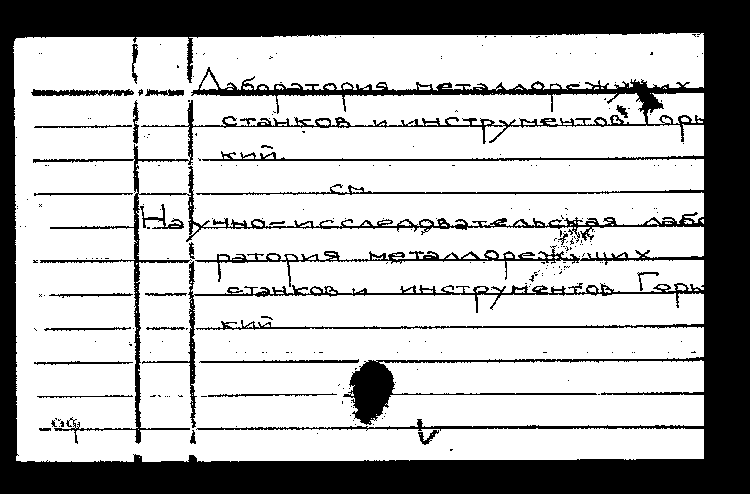 Лаборатория металлорежущих
станков и инструментов. Горь
кий.
см.
Научно-исследовательская лабо
ратория металлорежущих
станков и инструментов. Горь
кий